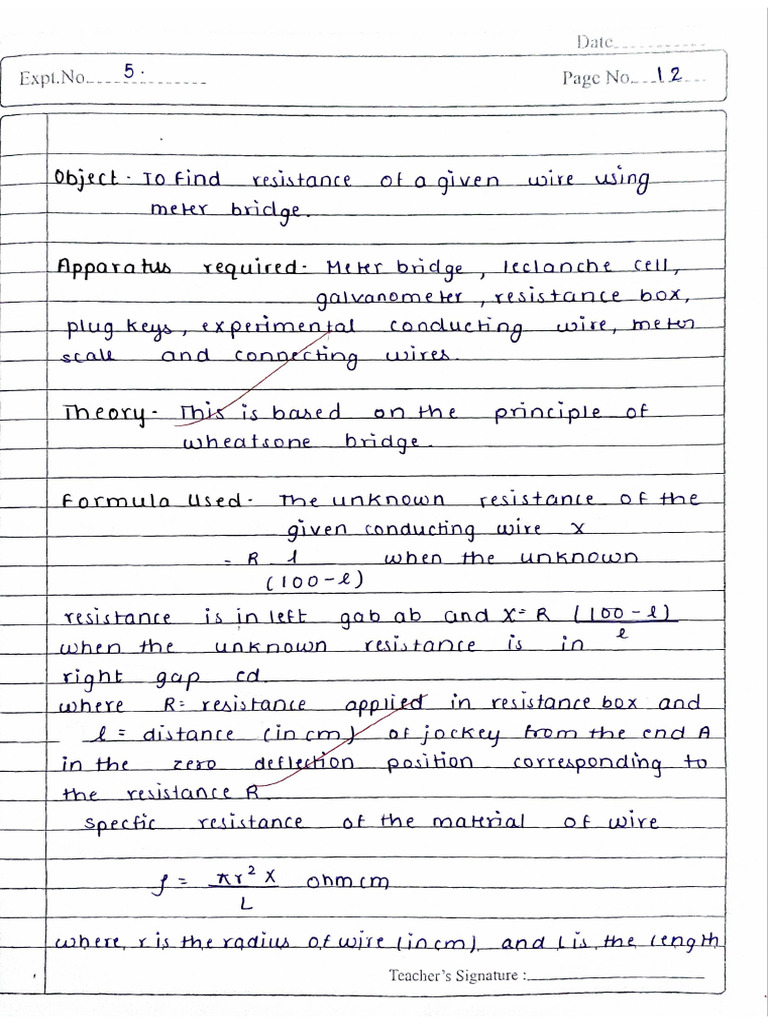 Date
Expt.No. 5.
Page No. 12
Object - To find resistance of a given wire using
meter bridge.
Apparatus required - Meter bridge, leclanche cell,
galvanometer, resistance box,
plug keys, experimental conducting wire, meter
scale and connecting wires.
Theory - This is based on the principle of
wheatsone bridge.
Formula Used - The unknown resistance of the
given conducting wire X
= R l when the unknown
(100-l)
resistance is in left gab ab and X= R (100-l)
l
when the unknown resistance is in
right gap cd.
where R= resistance applied in resistance box and
l = distance (in cm) of jockey from the end A
in the zero deflection position corresponding to
the resistance R.
specfic resistance of the material of wire
ρ = πr² X ohm cm
L
where, r is the radius of wire (in cm), and L is the length
Teacher's Signature :